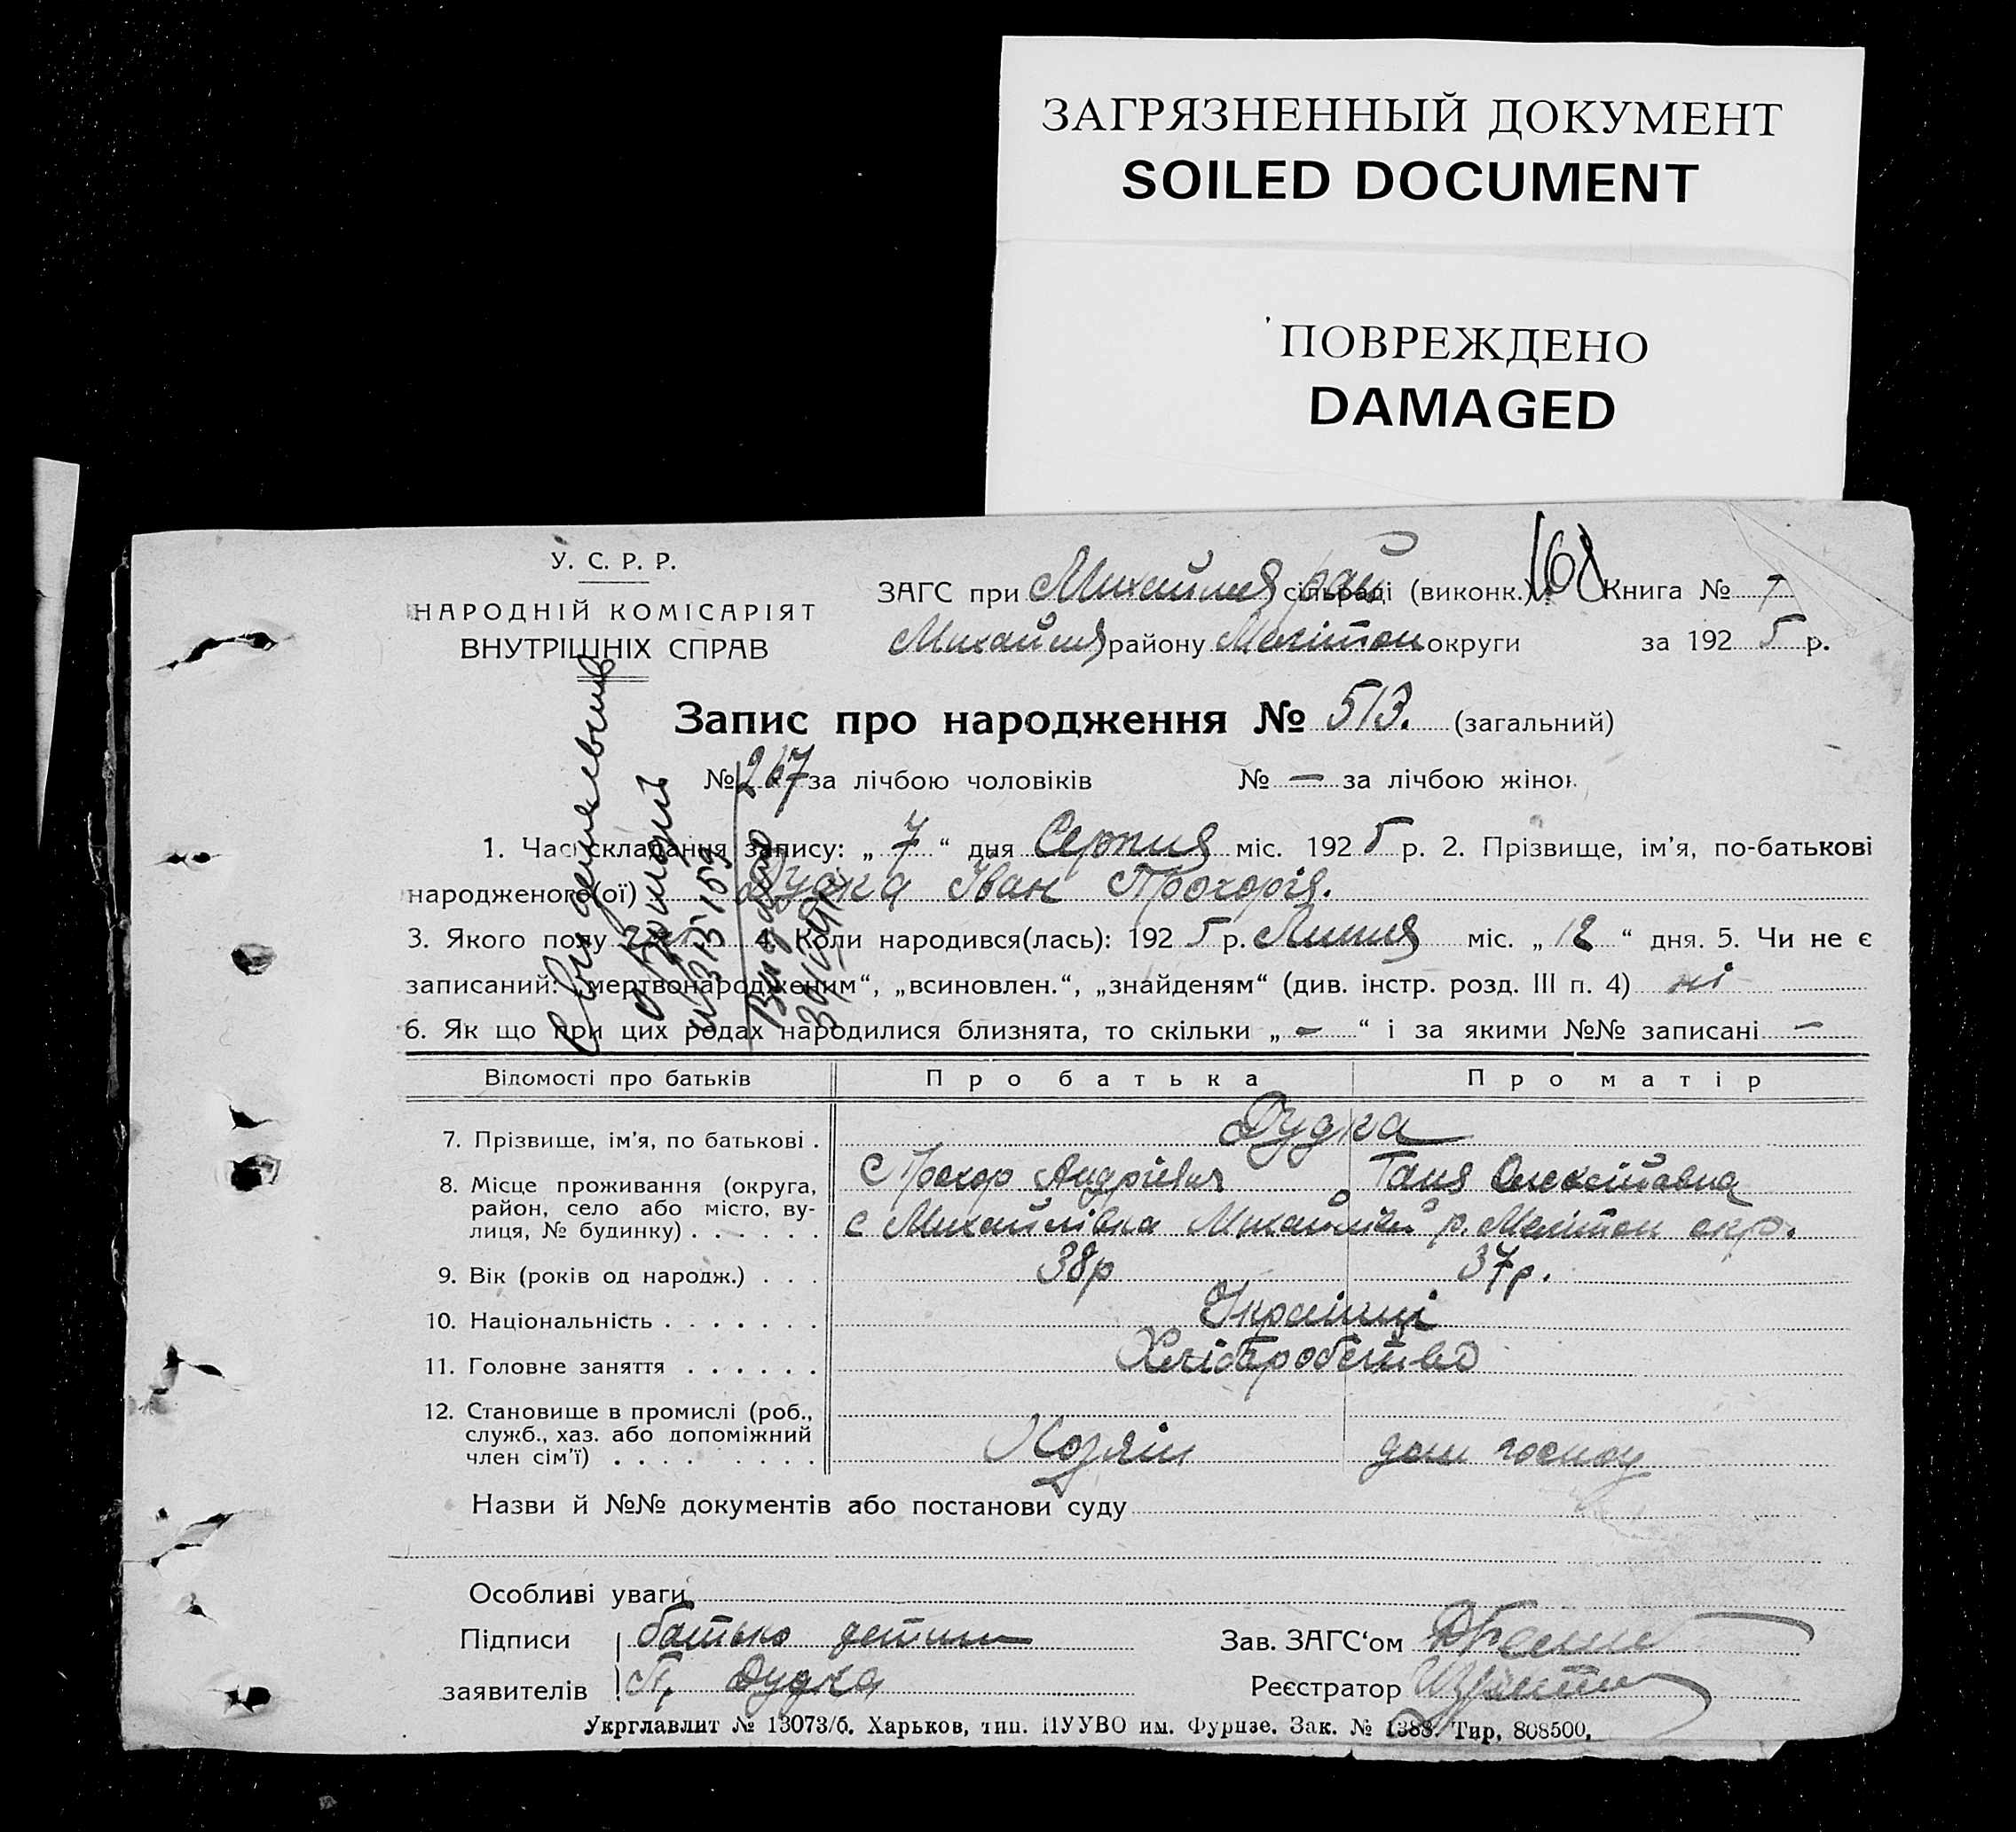 ЗАГРЯЗНЕННЫЙ ДОКУМЕНТ
SOILED DOCUMENT
ПОВРЕЖДЕНО
DAMAGED
У. С. Р. Р.
НАРОДНІЙ КОМІСАРІЯТ
ВНУТРІШНІХ СПРАВ
ЗАГС при Михайлів рай сільраді (виконк.) 168 Книга № 7
Михайлів району Мелітоп округи за 1925 р.
Запис про народження № 513. (загальний)
№ 267 за лічбою чоловіків № — за лічбою жінок
1. Час складання запису: „ 7 “ дня Серпня міс. 1925 р. 2. Прізвище, ім’я, по-батькові
народженого(ої) Дудка Іван Прохорів.
3. Якого полу чол. 4. Коли народився(лась): 1925 р. Липня міс. „ 12 “ дня. 5. Чи не є
записаний: „мертвонародженим“, „всиновлен.“, „знайденям“ (див. інстр. розд. III п. 4) ні
6. Як що при цих родах народилися близнята, то скільки „ — “ і за якими №№ записані —
Відомості про батьків Про батька Про матір
7. Прізвище, ім’я, по батькові . Дудка
Прохор Андрієвич Ганя Олексіївна
8. Місце проживання (округа,
район, село або місто, ву-
лиця, № будинку) . . . . . . с Михайлівка Михайлів р. Мелітоп окр.
9. Вік (років од народж.) . . . 38р 37р.
10. Національність . . . . . . . Українці
11. Головне заняття . . . . . . Хліборобство
12. Становище в промислі (роб.,
служб., хаз. або допоміжний
член сім’ї) . . . . . . . . Хозяїн дом госпоу
Назви й №№ документів або постанови суду
Особливі уваги
Підписи батько
заявителів П. Дудка
Зав. ЗАГС‘ом
Реєстратор
Укрглавлит № 13073/б. Харьков, тип. ПУУВО им. Фрунзе. Зак. № 1388. Тир, 808500.